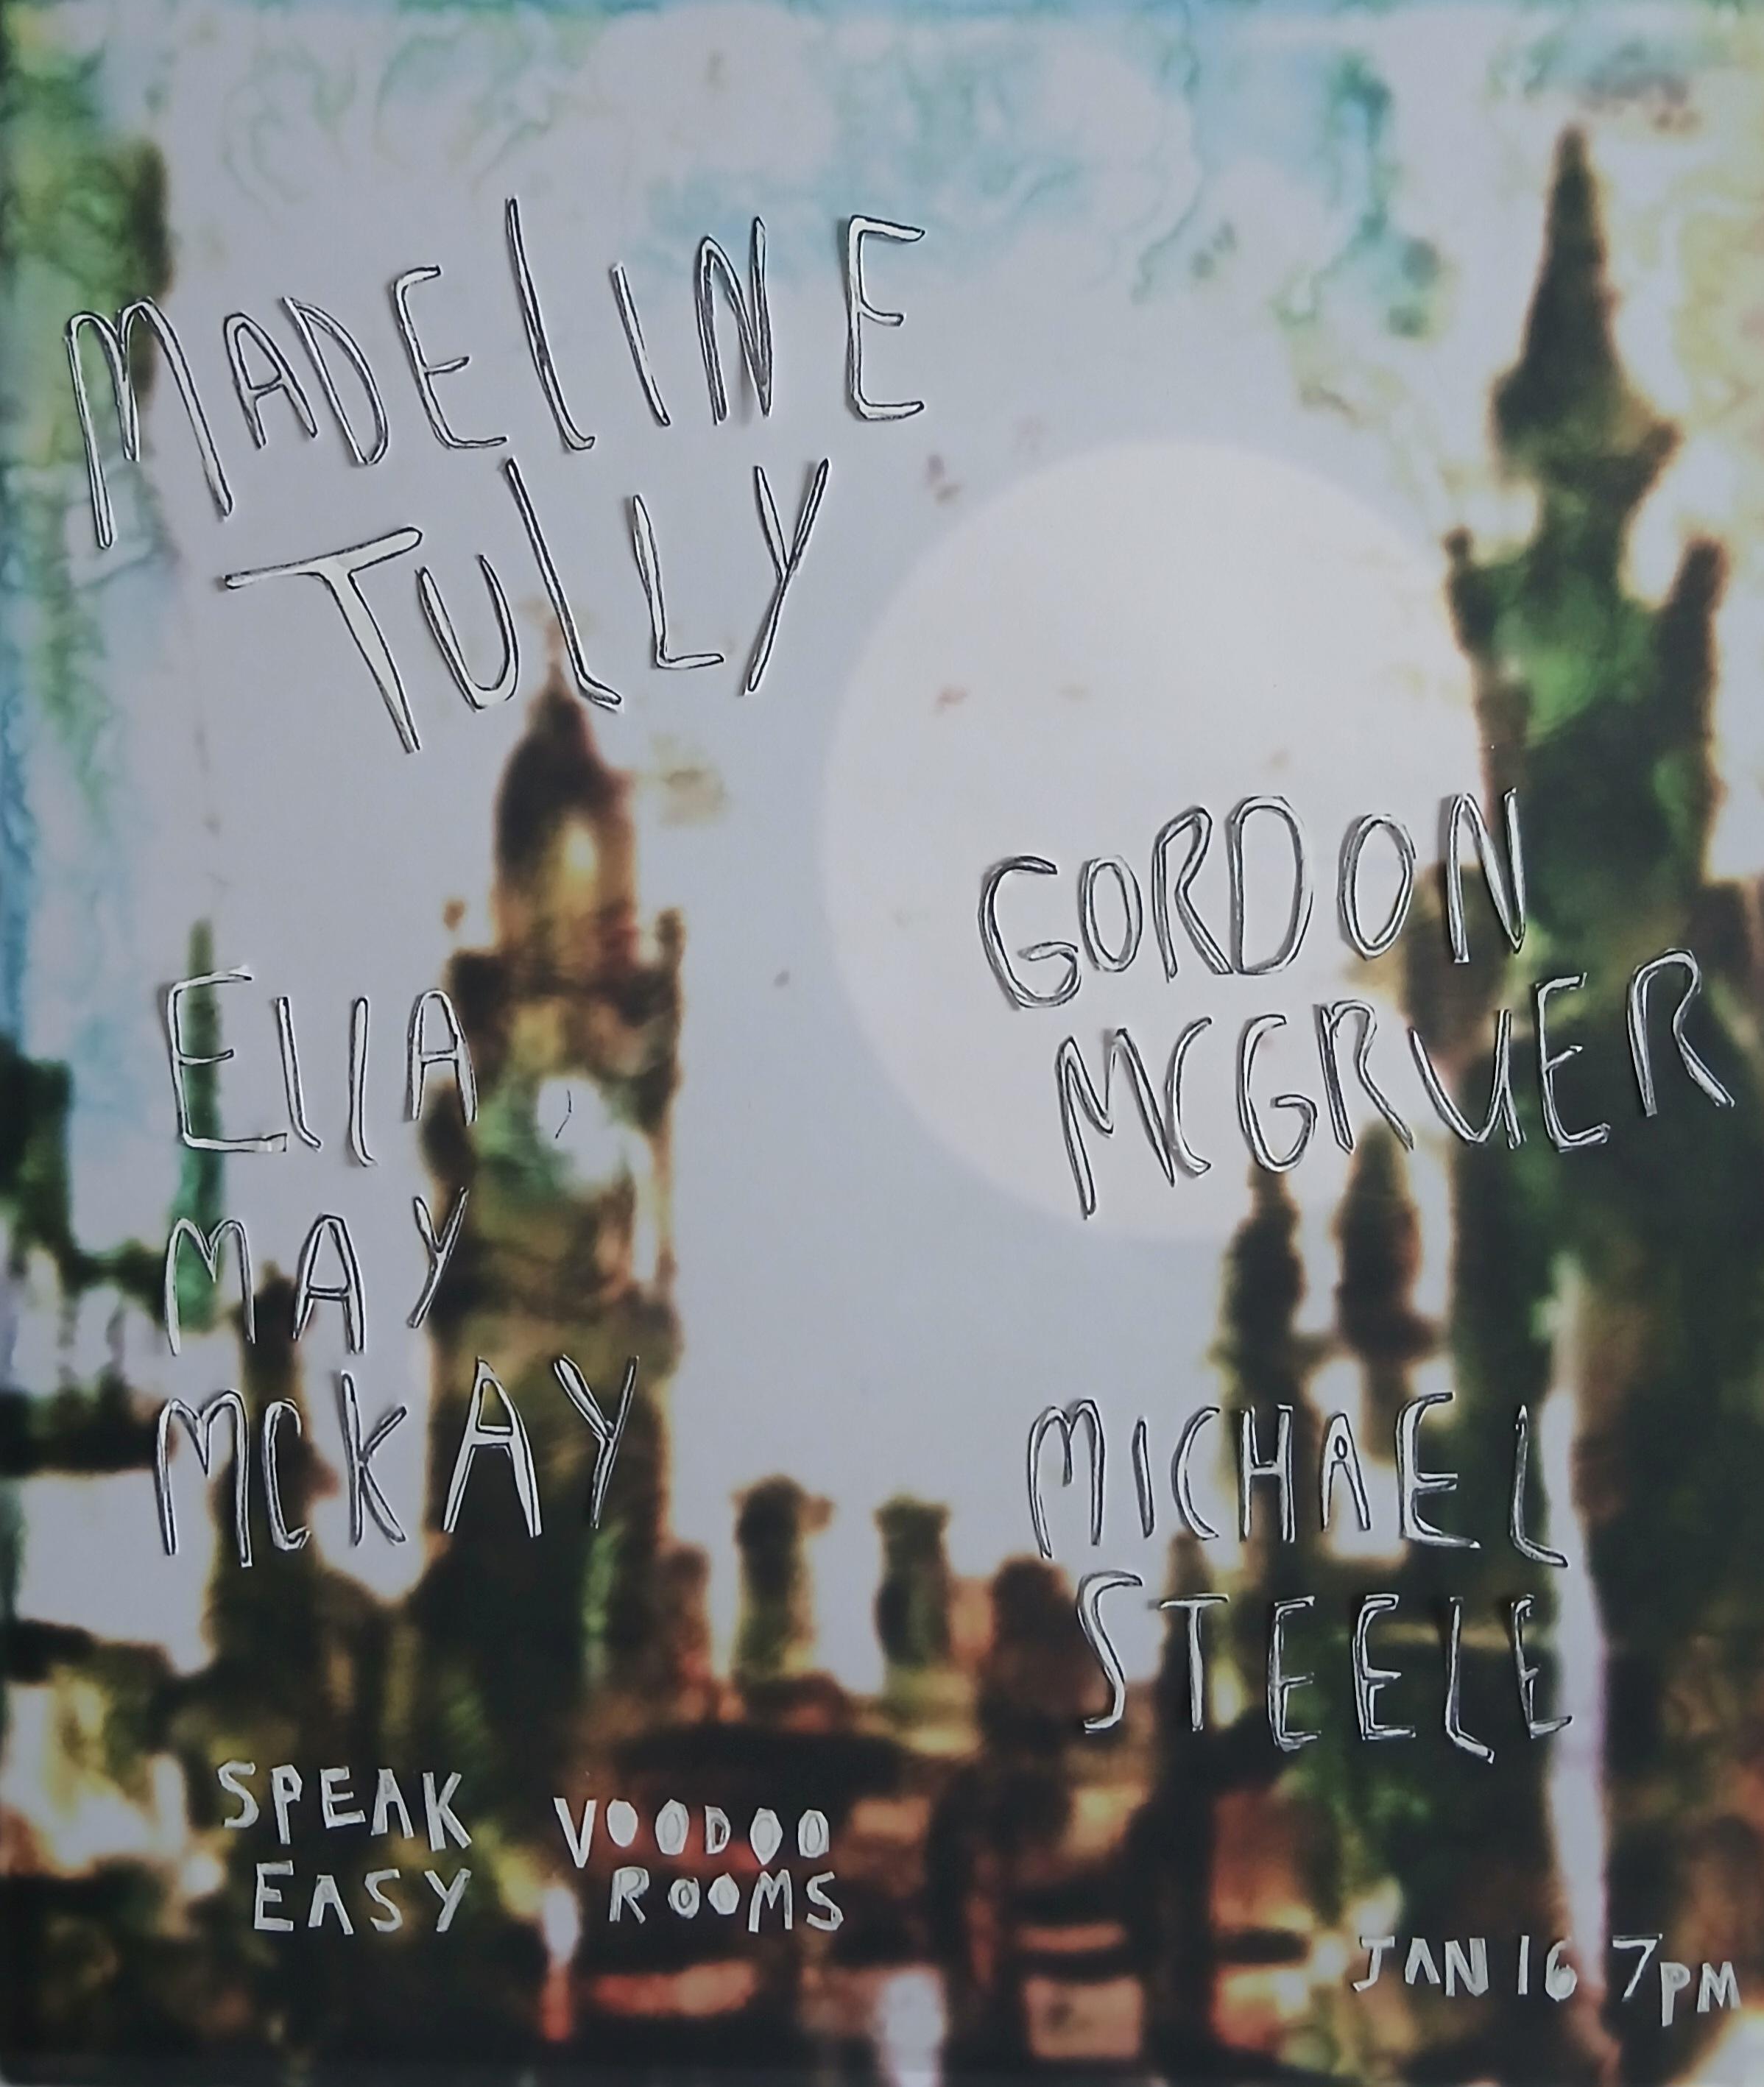 MADELINE
TULLY
GORDON
MCGRUER
ELLA
MAY
MCKAY
MICHAEL
STEELE
SPEAK
EASY
VOODOO
ROOMS
JAN 16 7PM